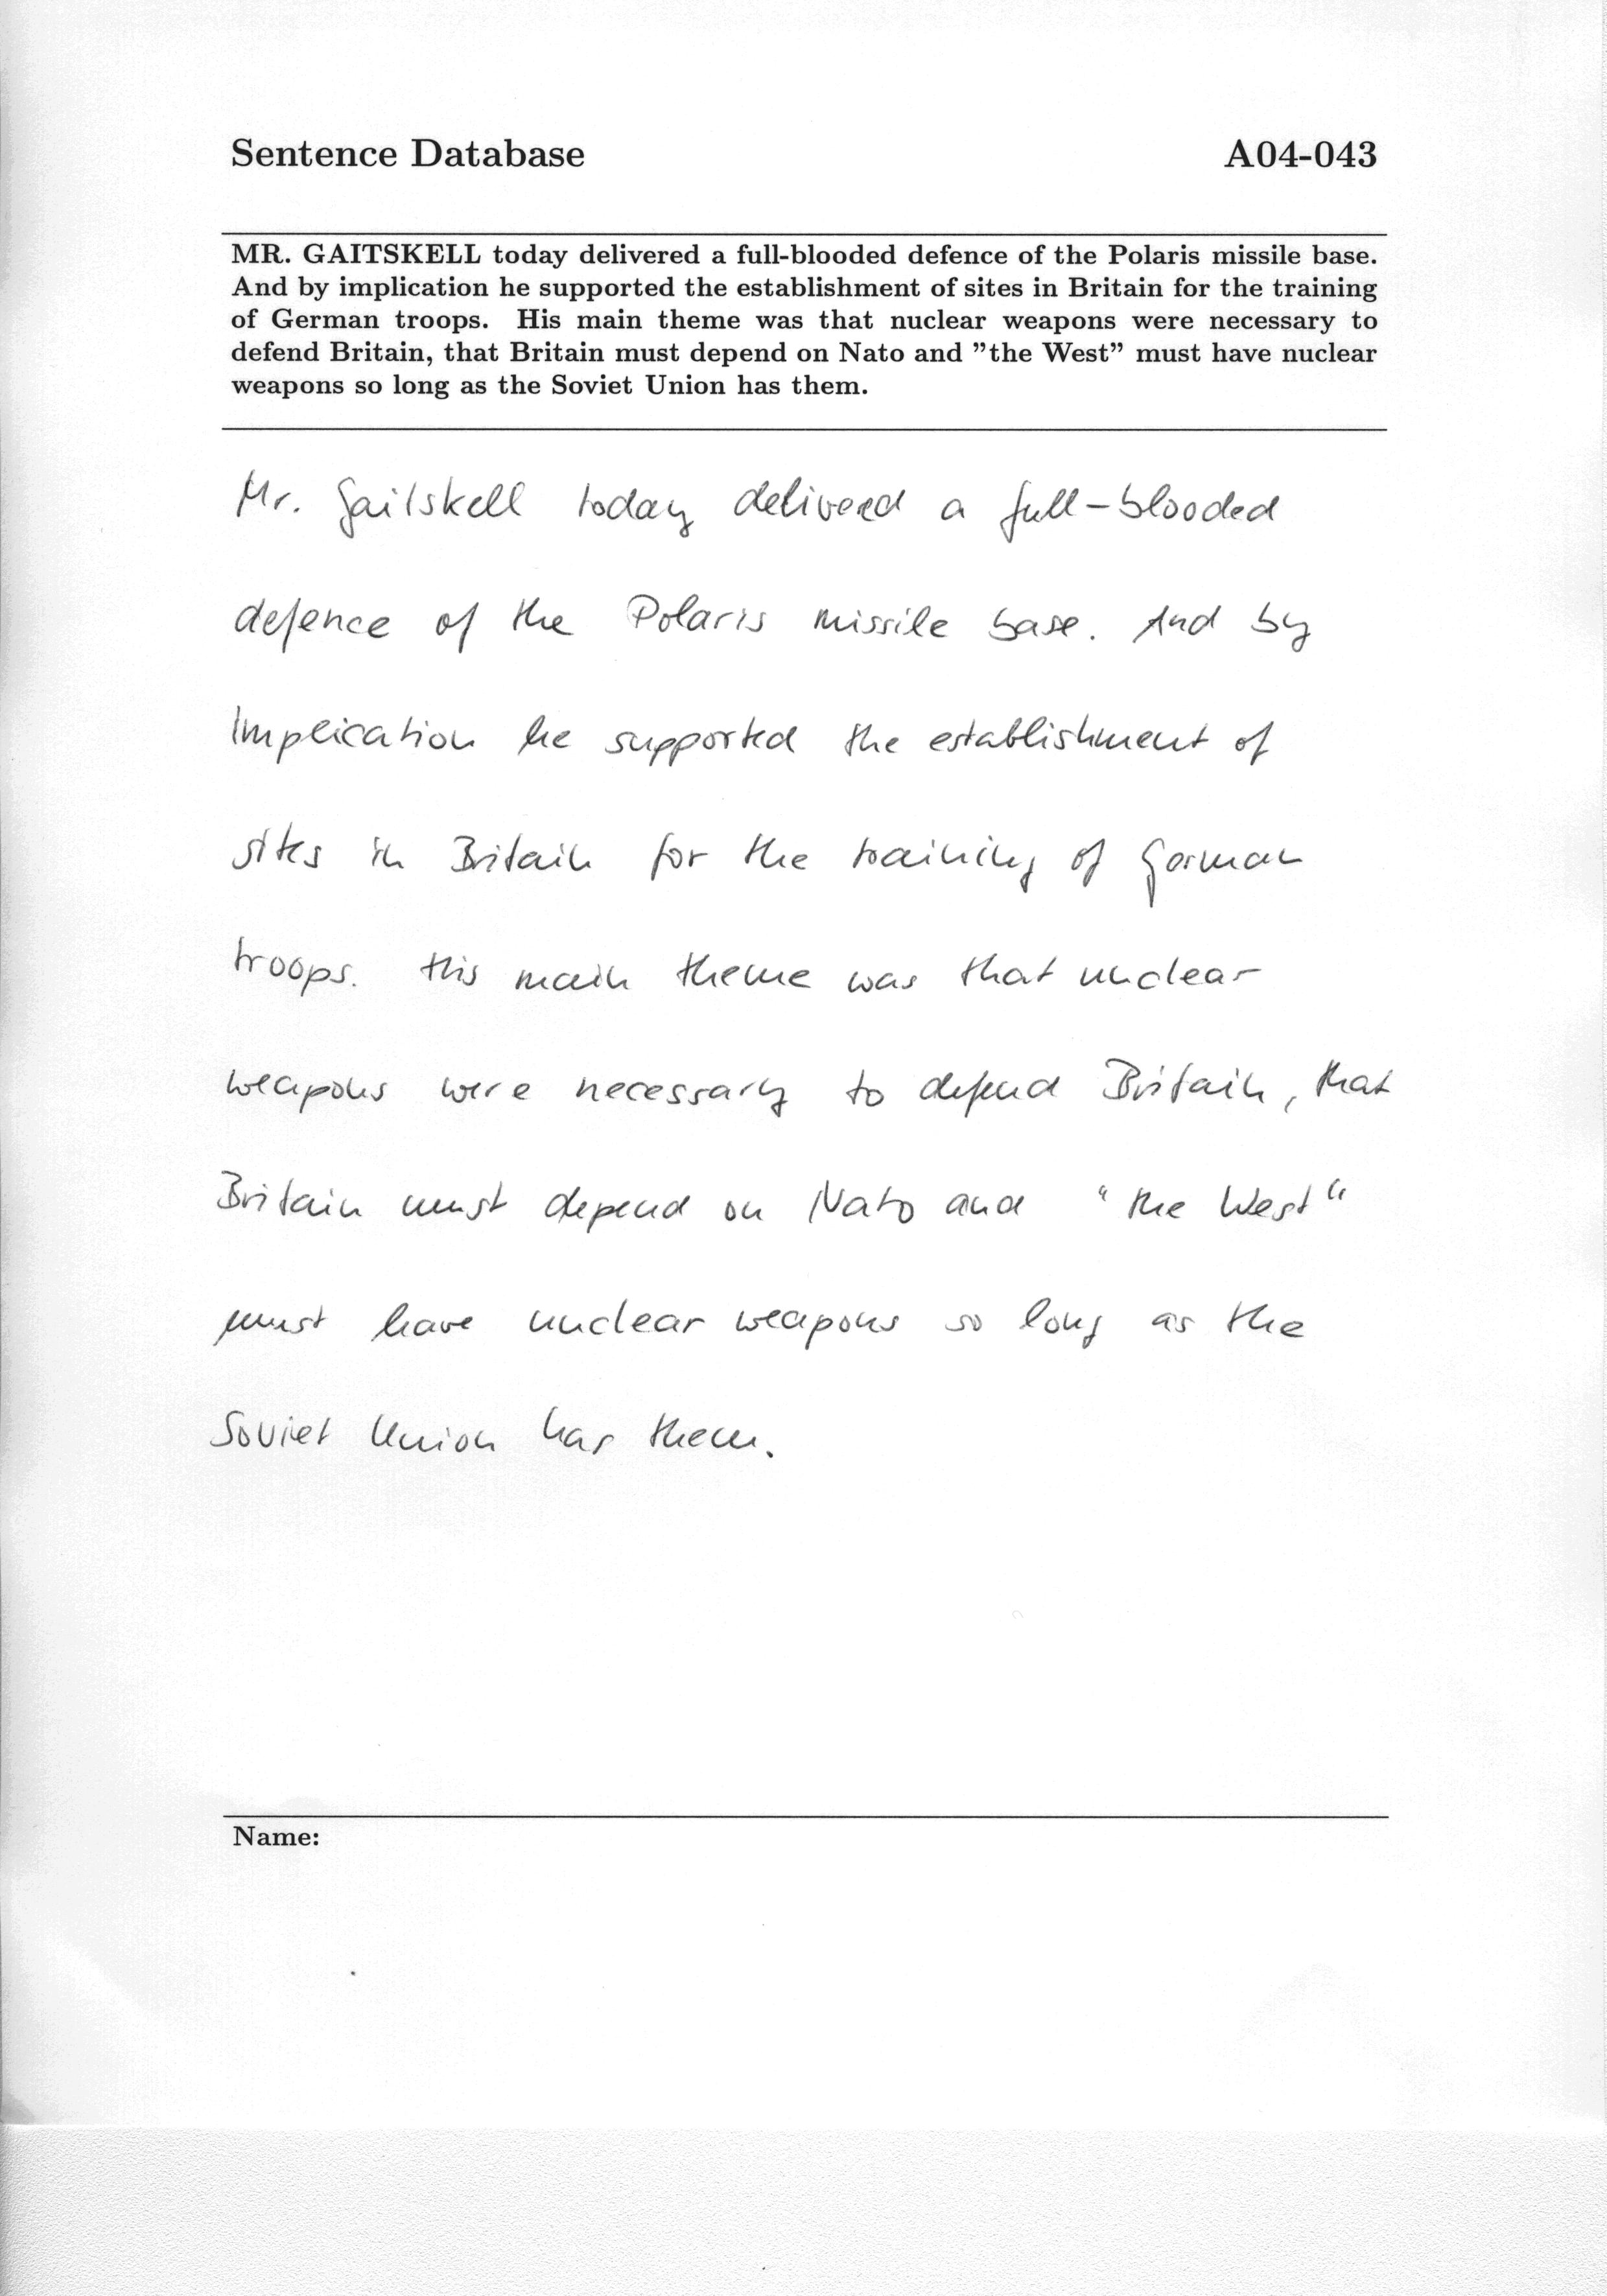 Sentence Database A04-043
MR. GAITSKELL today delivered a full-blooded defence of the Polaris missile base.
And by implication he supported the establishment of sites in Britain for the training
of German troops. His main theme was that nuclear weapons were necessary to
defend Britain, that Britain must depend on Nato and ”the West” must have nuclear
weapons so long as the Soviet Union has them.
Mr. Gaitskell today delivered a full-blooded
defence of the Polaris missile base. And by
implication he supported the establishment of
sites in Britain for the training of German
troops. This main theme was that unclear
weapons were necessary to defend Britain, that
Britain must depend on Nato and “the West“
must have unclear weapons so long as the
Soviet Union has them.
Name: